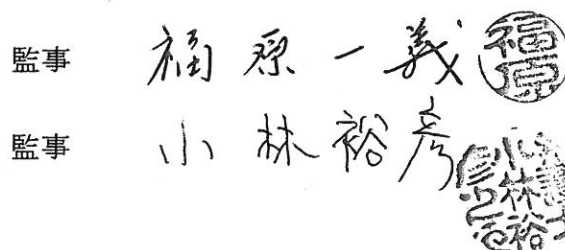 監事 福原一義 福原
監事 小林裕彦